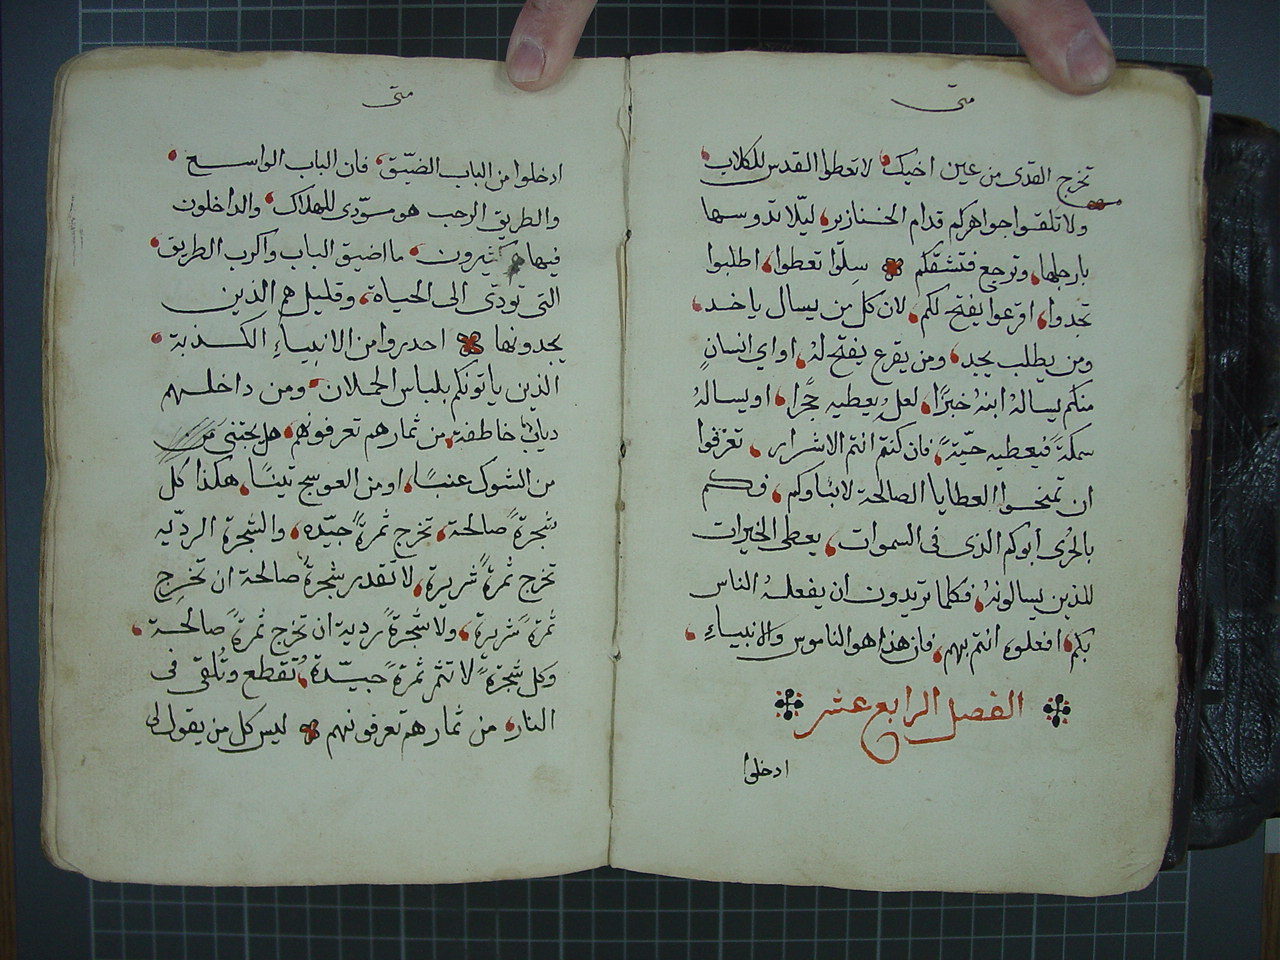 متى
تخرج القذى من عين اخيك، لا تعطوا القدس للكلاب،
ولا تلقوا جواهركم قدام الخنازير، ليّلا تدوسها
بارجلها، وترجع فتشقكم سلوا تعطوا، اطلبوا
تجدوا، اقرعوا يفتح لكم، لان كل من يسال ياخد،
ومن يطلب يجد، ومن يقرع يفتح لهُ، او اي انسانٍ
منكم يسالهُ ابنهُ خبزًا، لعلهِ يعطيهِ حجرًا، او يسالهُ
سمكةً فيعطيه حيّةً، فان كنتم انتم الاشرار، تعرفوا
ان تمنحوا العطايا الصالحة لابناوكم، فكم
بالحرى أبوكم الذى فى السموات، يعطى الخيرات
للذين يسالونهُ، فكلما تريدون ان يفعلهُ الناس
بكم، افعلوهُ انتم بهم، فان هذا هو الناموس والانبياءِ،
الفصل الرابع عشر
ادخلوا
متى
ادخلوا من الباب الضيّق، فان الباب الواسع،
والطريق الرحب هو موّدى للهلاك، والداخلون
فيها كثيرون، ما اضيق الباب واكرب الطريق،
التى تودّى الى الحياة، وقليل هم الذين
يجدونها احدروا من الانبياءِ الكذبة،
الذين ياتونكم بلباس الحملان، ومن داخلهم
دياب خاطفة، من ثمارهم تعرفونهم، هل يجتنى
من الشوك عنبًا، او من العوسج تينًا، هكذا كل
شجرةً صالحة، تخرج ثمرةً جيّده، والشجرة الرديّه
تخرج ثمرةً شريرة، لا تقدر شجرةً صالحة ان تخرج
ثمرةً شريرة، ولا شجرةً رديةً ان تخرج ثمرةً صالحة،
وكل شجرةً لا تثمر ثمرةً جيّدة، تُقطع وتُلقى فى
النار، من ثمارهم تعرفونهم ليس كل من يقول لى